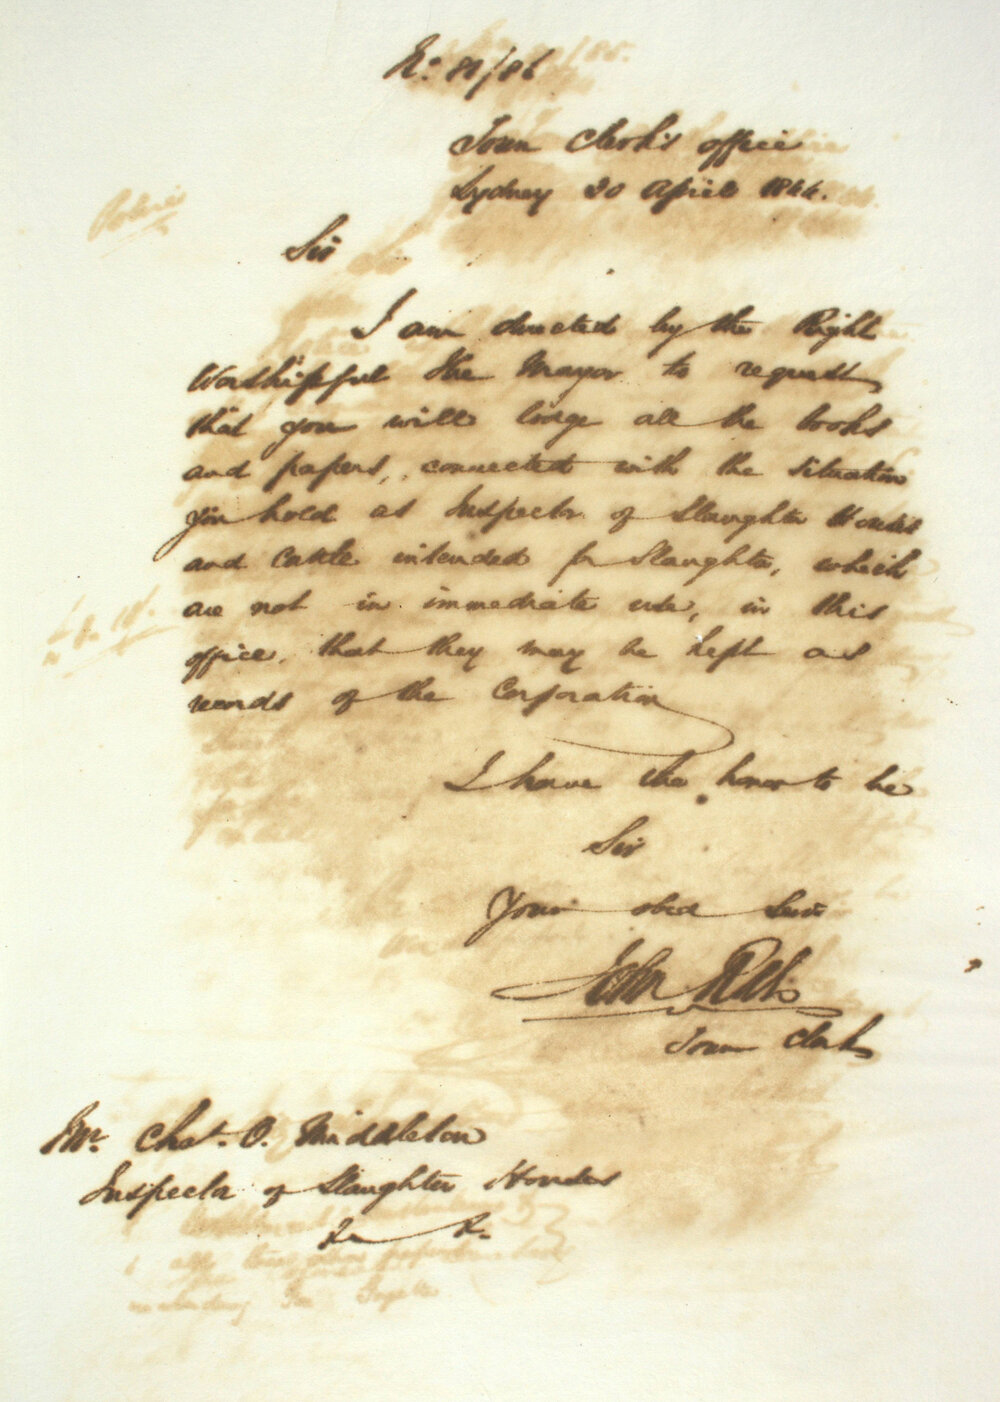 No. 81/86
Town Clerk's office
Sydney 20 April 1844.
Sir
I am directed by the Right
Worshipful the Mayor to request
that you will lodge all the books
and papers, connected with the situation
you hold as Inspector of Slaughter Houses
and Cattle intended for Slaughter, which
are not in immediate use, in this
office, that they may be kept as
records of the Corporation
I have the honor to be
Sir
Your obed Serv
John Rae
Town Clerk
Mr. Chas. O. Middleton
Inspector of Slaughter Houses